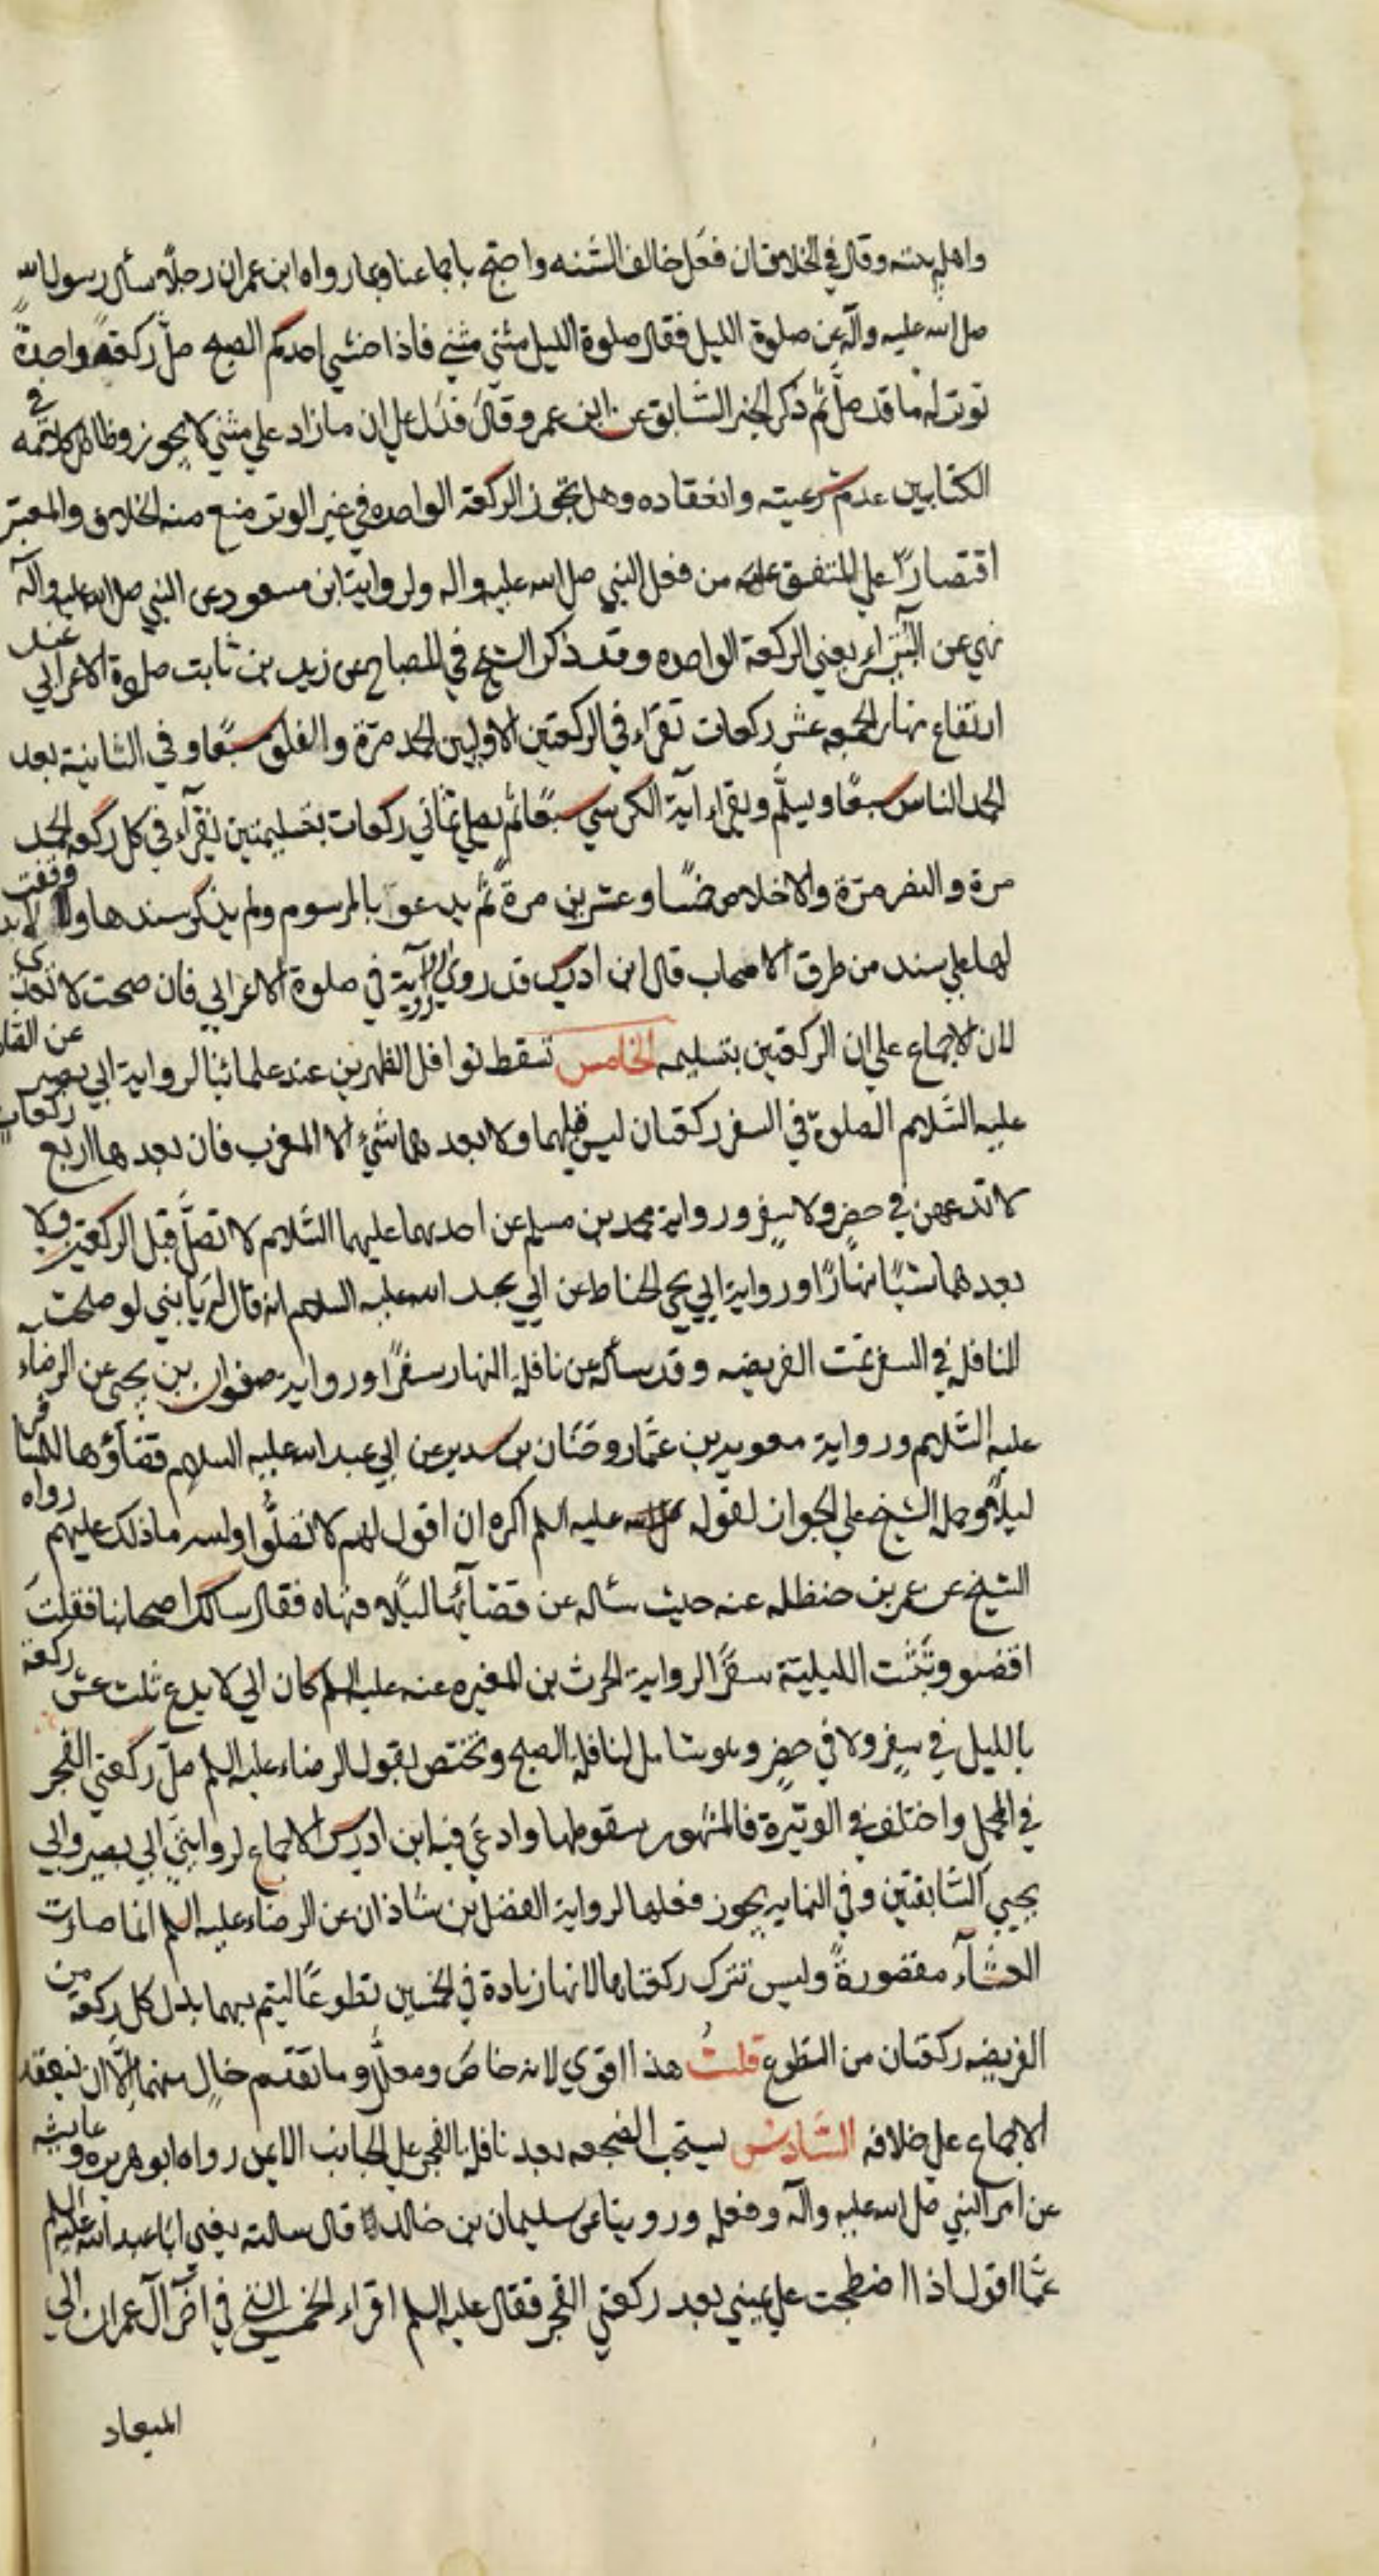 واهل بيته وقال في الخلاف ان فعل خالف السنه واحتج باجماعنا وبما رواه ابن عمر ان رجلا سأل رسول الله
صلى الله عليه وآله عن صلوة الليل فقال صلوة الليل مثنى مثنى فاذا خشي احدكم الصبح صلّ ركعةً واحدةً
توتر له ما قد صلّى ثم ذكر الخبر السّابق عن ابن عمر وقال فدل على ان ما زاد على مثنى لا يجوز وظاهر كلامه في
الكتابين عدم شرعيته وانعقاده وهل تجوز الركعة الواحده في غير الوتر منع منه الخلاف والمعتبر
اقتصارًا علي المتفق عليه من فعل النبي صلى الله عليه واله ولرواية ابن مسعود عن النبي صلى الله عليه وآله
نهي عن البتراء يعني الركعة الواحده وقد ذكر الشيخ في المصباح عن زيد بن ثابت صلوة الاعرابي عند
ارتفاع نهار الجمعه عشر ركعات تقراء في الركعتين الاوليين الحمد مرّة والفلق سبعًا وفي الثانية بعد
الحمد الناس سبعًا ويسلّم ويقراء آية الكرسي سبعًا ثم يصلي ثماني ركعات بتسليمتين يقرآء في كل ركعه الحمد
مرة والنصر مرّة والاخلاص خمسًا وعشرين مرة ثم يدعو بالمرسوم ولم يذكر سندها ولا وقفت
لها على سند من طرق الاصحاب قال ابن ادريس قد روي رواية في صلوة الاعرابي فان صحت لا تعدّى
لان الاجماع علي ان الركعتين بتسليمه الخامس تسقط نوافل الظهرين عند علمائنا لرواية ابي بصير عن الصّادق
عليه السّلام الصلوة في السفر ركعتان ليس قبلهما ولا بعدهما شيء الا المغرب فان بعدها اربع ركعات
لا تدعهن في حضرٍ ولا سفرٍ ورواية محمد بن مسلم عن احدهما عليهما السّلام لا تصلّ قبل الركعتين ولا
بعدهما شيئًا نهارًا ورواية ابي يحيى الحناط عن ابي عبد الله عليه السلام انه قال له يا بني لو صلحت
النافلة في السفر تمت الفريضه وقد سأله عن نافلة النهار سفرًا ورواية صفوان بن يحيى عن الرضاء
عليه السّلام ورواية معويه بن عمّار وحنّان بن سدير عن ابي عبد الله عليه السلام قضآؤها للمسافر
ليلًا وحمله الشيخ على الجواز لقوله عليه السلم اكره ان اقول لهم لا تصلّوا وليس ما ذلك عليهم رواه
الشيخ عن عمر بن حنظله عنه حيث سأله عن قضائها ليلًا فنهاه فقال سالك اصحابنا فقلت
اقضوا وتثبت الليليّة سفرًا لرواية الحرث بن المغيره عنه عليه السلم كان ابي لا يدع ثلث عشر ركعة
بالليل في سفرٍ ولا في حضرٍ وهو شامل لنافلة الصبح وتختص بقول الرضاء عليه السلم صلّ ركعتي الفجر
في المحمل واختلف في الوتيرة فالمشهور سقوطها وادعي فيه ابن ادريس الاجماع لروايتي ابي بصير وابي
يحيي السّابقتين وفي النهاية يجوز فعلها لرواية الفضل بن شاذان عن الرضاء عليه السلم انما صارت
العشآء مقصورةً وليس تترك ركعتاها لانها زيادة في الخمسين تطوعًا ليتم بهما بدل كل ركعة من
الفريضه ركعتان من التطوع قلتُ هذا اقوي لانه خاصّ ومعللٌ وما تقدم خالٍ منهما إلّا ان ينعقد
الاجماع علي خلافه السّادس يستحب الضجعه بعد نافلة الفجر على الجانب الايمن رواه ابو هريره وعايشه
عن امر النبي صلى الله عليه وآله وفعله وروينا عن سليمان بن خالد قال سالته يعني ابا عبد الله عليه السلم
عمّا اقول اذا اضطجعت علي يميني بعد ركعتي الفجر فقال عليه السلم اقراء الخمس التي في آخر آل عمران الي
الميعاد